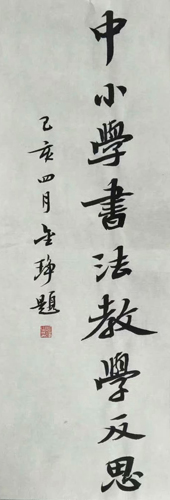 中小學書法教學反思
乙亥四月金琤題